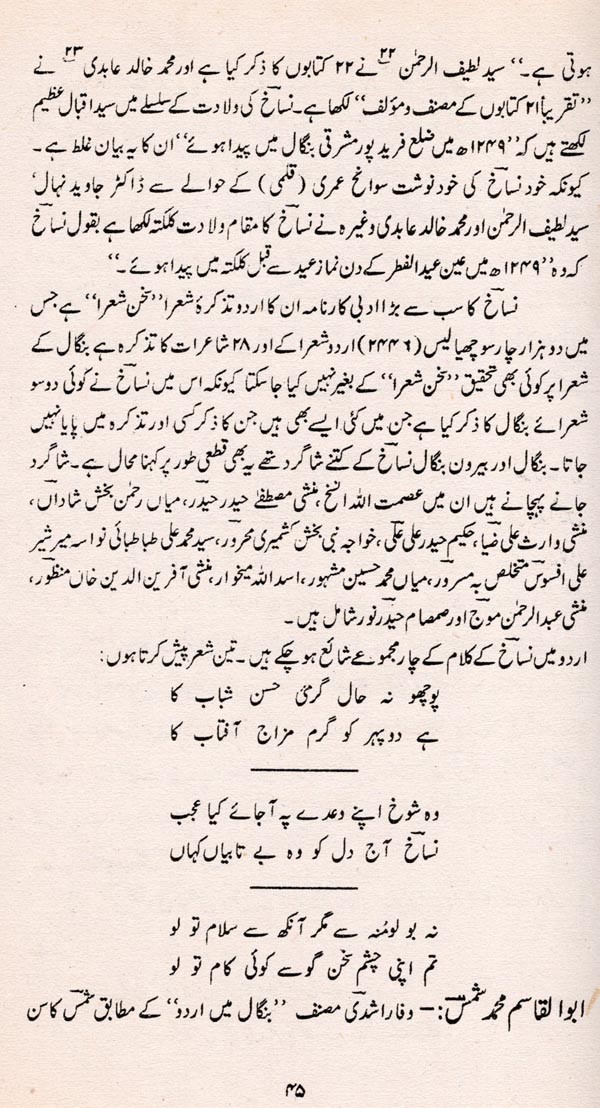 ہوتی ہے۔‘‘ سید لطیف الرحمٰن ۲۲ نے ۲۲ کتابوں کا ذکر کیا ہے اور محمد خالد عابدی ۲۳ نے
’’تقریباً ۲۱ کتابوں کے مصنف و مؤلف‘‘ لکھا ہے۔ نساخؔ کی ولادت کے سلسلے میں سید اقبال عظیم
لکھتے ہیں کہ ’’۱۲۴۹ھ میں ضلع فرید پور مشرقی بنگال میں پیدا ہوئے‘‘ ان کا یہ بیان غلط ہے۔
کیونکہ خود نساخؔ کی خود نوشت سوانح عمری (قلمی) کے حوالے سے ڈاکٹر جاوید نہالؔ
سید لطیف الرحمٰن اور محمد خالد عابدی وغیرہ نے نساخؔ کا مقام ولادت کلکتہ لکھا ہے بقول نساخؔ
کہ وہ ’’۱۲۴۹ھ میں عین عید الفطر کے دن نماز عید سے قبل کلکتہ میں پیدا ہوئے۔‘‘
نساخؔ کا سب سے بڑا ادبی کارنامہ ان کا اردو تذکرۂ شعرا ’’سخن شعرا‘‘ ہے جس
میں دو ہزار چار سو چھیالیس (۲۴۴۶) اردو شعرا کے اور ۲۸ شاعرات کا تذکرہ ہے بنگال کے
شعرا پر کوئی بھی تحقیق ’’سخن شعرا‘‘ کے بغیر نہیں کیا جا سکتا کیونکہ اس میں نساخؔ نے کوئی دو سو
شعرائے بنگال کا ذکر کیا ہے جن میں کئی ایسے بھی ہیں جن کا ذکر کسی اور تذکرہ میں پایا نہیں
جاتا۔ بنگال اور بیرون بنگال نساخؔ کے کتنے شاگرد تھے یہ بھی قطعی طور پر کہنا محال ہے۔ شاگرد
جانے پہچانے ہیں ان میں عصمت اللہ انسخؔ، منشی مصطفٰے حیدر حیدرؔ، میاں رحمٰن بخش شاداںؔ،
منشی وارث علی ضیاؔ، حکیم حیدر علی علیؔ، خواجہ نبی بخش کشمیری محرورؔ، سید محمد علی طباطبائی نواسہ میر شیر
علی افسوسؔ متخلص بہ مسرورؔ، میاں محمد حسین مشہورؔ، اسد اللہ میخوارؔ، منشی آفرین الدین خاں منظورؔ،
منشی عبد الرحمٰن موجؔ اور صمصام حیدر نورؔ شامل ہیں۔
اردو میں نساخؔ کے کلام کے چار مجموعے شائع ہو چکے ہیں۔ تین شعر پیش کرتا ہوں:
پوچھو نہ حال گرمئ حسن شباب کا
ہے دوپہر کو گرم مزاج آفتاب کا
وہ شوخ اپنے وعدے پہ آ جائے کیا عجب
نساخؔ آج دل کو وہ بے تابیاں کہاں
نہ بولو مُنہ سے مگر آنکھ سے سلام تو لو
تم اپنی چشم سخن گو سے کوئی کام تو لو
ابوالقاسم محمد شمسؔ:– وفا راشدی مصنف ’’بنگال میں اردو‘‘ کے مطابق شمسؔ کا سن
۴۵